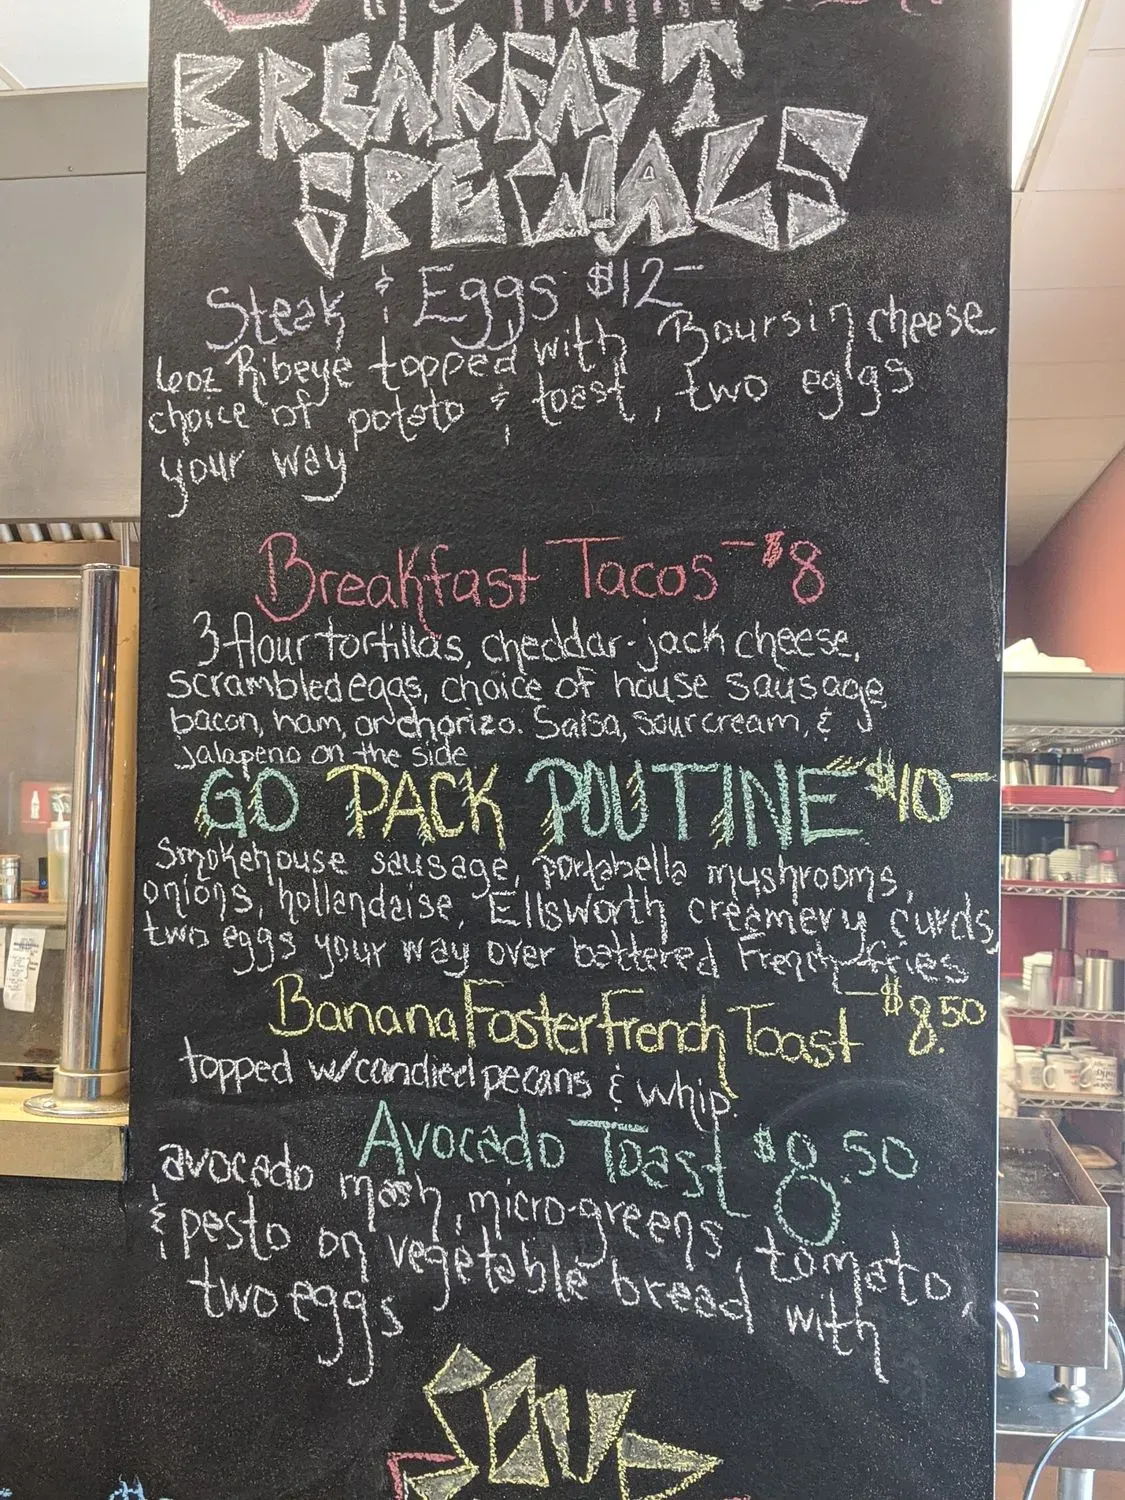 BREAKFAST
SPECIALS
Steak & Eggs $12-
6oz Ribeye topped with Boursin cheese
choice of potato & toast, two eggs
your way
Breakfast Tacos -$8
3 flour tortillas, cheddar-jack cheese,
scrambled eggs, choice of house sausage,
bacon, ham, or chorizo. Salsa, sour cream, &
jalapeno on the side
GO PACK POUTINE $10-
Smokehouse sausage, portabella mushrooms,
onions, hollandaise, Ellsworth creamery curds,
two eggs your way over battered French fries
Banana Foster French Toast -$8.50
topped w/candied pecans & whip.
Avocado Toast $8.50
avocado mash, micro-greens, tomato,
& pesto on vegetable bread with
two eggs
SOUP